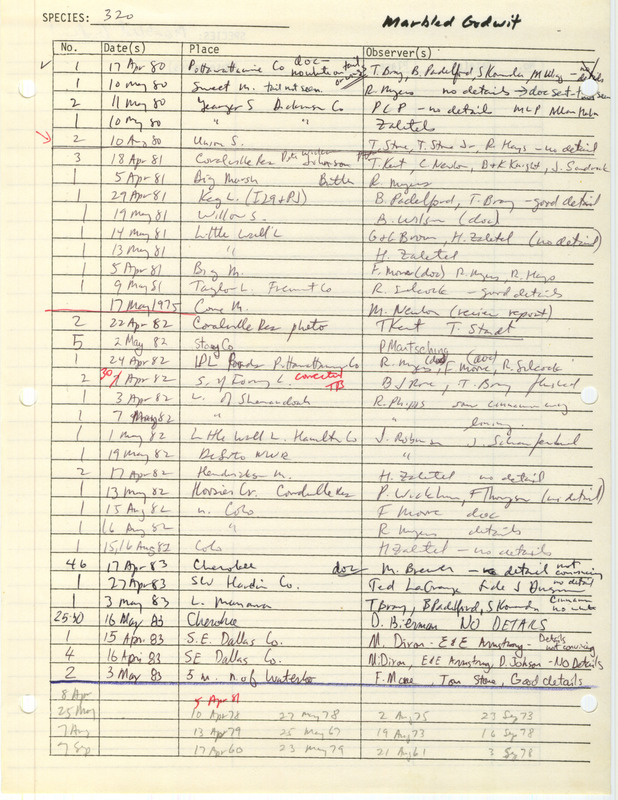 SPECIES: 320
Marbled Godwit
No. Date(s) Place Observer(s)
1 17 Apr 80 Pottawattamie Co doc- T. Bray, B. Padelford, S Kovanda, M Wiig - no details
1 10 May 80 Sweet M. tail not seen R. Myers no details → doc sent -
2 11 May 80 Yeager S Dickinson Co PCP - no details MLP
1 10 May 80 " " Zaletel
2 10 Aug 80 Union S. T. Stone, T. Stone Jr, R. Mays - no detail
3 18 Apr 81 Coralville Res T Kent, C Newlon, B+K Knight, J. Sandrock
1 5 Apr 81 Big Marsh Butler R. Myers
1 29 Apr 81 Keg L. (I29+PJ) B. Padelford, T. Bray - good detail
1 19 May 81 Willow S. B. Wilson (doc)
1 14 May 81 Little Wall L G+G Brown, H. Zaletel (no detail)
1 13 May 81 " H. Zaletel
1 5 Apr 81 Big M. F. Moore (doc) R. Myers, R. Hays
1 9 May 81 Taylor L. Fremont Co R. Silcock - good details
17 May 1975 Cone M. M. Newlon (review report)
2 22 Apr 82 Coralville Res photo T Kent T. Staudt
5 2 May 82 Story Co P Martsching (doc)
1 24 Apr 82 IPL Ponds Pottawattamie Co R. Myers, F. Moore, R. Silcock
2 30 Apr 82 S. of Forney L. corrected TB B J Rose, T. Bray flushed
1 3 Apr 82 W. of Shenandoah R. Phipps saw cinnamon wing
1 7 May 82 " " lining.
1 1 May 82 Little Wall L. Hamilton Co J. Robinson J. Schaufenbuel
1 19 May 82 DeSoto NWR "
2 17 Apr 82 Hendrickson M. H. Zaletel no detail
1 13 May 82 Hoosier Cr. Coralville Res P. Wickham, F Thompson (no detail)
1 15 Aug 82 n. Colo F Moore doc
1 16 Aug 82 " R Myers details
1 15,16 Aug 82 Colo H Zaletel - no details
46 17 Apr 83 Cherokee doc M. Brewer - no detail not convincing
1 27 Apr 83 SW Hardin Co. Ted LaGrange no detail
1 3 May 83 L. Manawa T Bray, B Padelford, S Kovanda
25-30 16 May 83 Cherokee D. Bierman NO DETAILS
1 15 Apr. 83 S.E. Dallas Co. M. Dixon - E+E Armstrong - Details not convincing
4 16 April 83 SE Dallas Co. M. Dixon, E+E Armstrong, D. Johnson - NO Details
2 3 May 83 5 m. n. of Waterloo F. Moore, Tom Stone, Good details
8 Apr 5 Apr 81
25 May 10 Apr 78 27 May 78 2 Aug 75 23 Sep 73
7 Aug 13 Apr 79 25 May 67 19 Aug 73 16 Sep 78
7 Sep 17 Apr 60 23 May 79 21 Aug 61 3 Sep 78